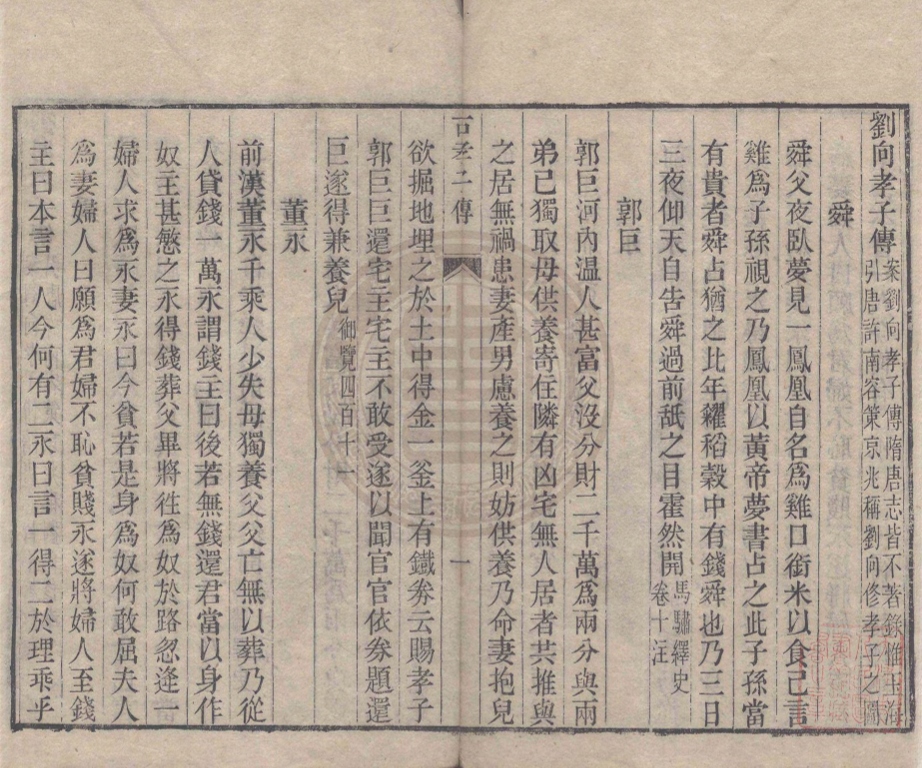 劉向孝子傳案劉向孝子傳隋唐志皆不著錄惟玉海
引唐許南容策京兆稱劉向修孝子之圖
舜
舜父夜臥夢見一鳳凰自名爲雞口銜米以食己言
雞爲子孫視之乃鳳凰以黃帝夢書占之此子孫當
有貴者舜占猶之比年糴稻穀中有錢舜也乃三日
三夜仰天自告舜過前舐之目霍然開馬驌繹史
卷十注
郭巨
郭巨河內溫人甚富父沒分財二千萬爲兩分與兩
弟己獨取母供養寄住隣有凶宅無人居者共推與
之居無禍患妻產男慮養之則妨供養乃命妻抱兒
古孝子傳
一
欲掘地埋之於土中得金一釜上有鐵券云賜孝子
郭巨巨還宅主宅主不敢受遂以聞官官依券題還
巨遂得兼養兒御覽四百十一
董永
前漢董永千乘人少失母獨養父父亡無以葬乃從
人貸錢一萬永謂錢主曰後若無錢還君當以身作
奴主甚慜之永得錢葬父畢將往爲奴於路忽逢一
婦人求爲永妻永曰今貧若是身爲奴何敢屈夫人
爲妻婦人曰願爲君婦不恥貧賤永遂將婦人至錢
主曰本言一人今何有二永曰言一得二於理乖乎